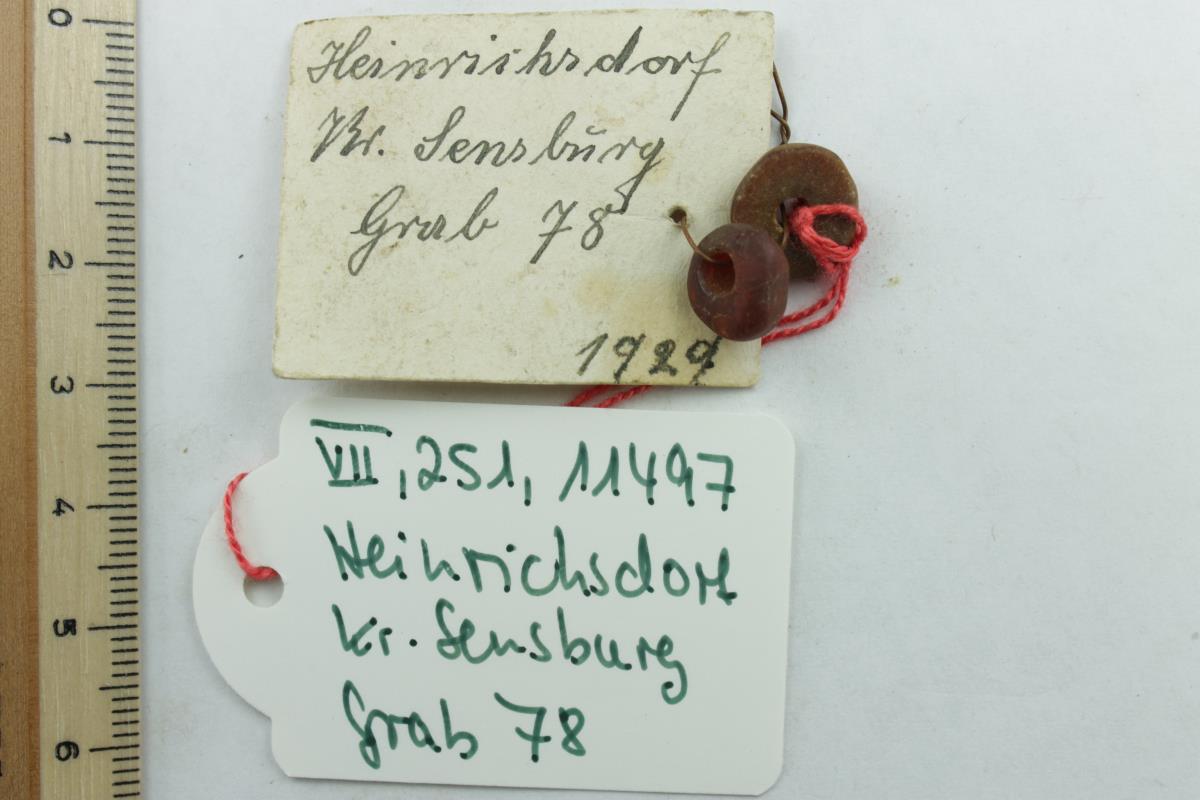 Heinrichsdorf
Kr. Sensburg
Grab 78
1929
VII, 251, 11497
Heinrichsdorf
Kr. Sensburg
Grab 78
0
1
2
3
4
5
6